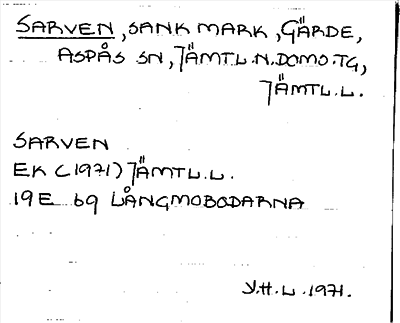 SARVEN, SANK MARK, GÄRDE,
ASPÅS SN, JÄMTL.N.DOMS.TG,
JÄMTL.L.
SARVEN
EK (1971) JÄMTL.L.
19E 6g LÅNGMOBODARNA
Y.H.L. 1971.